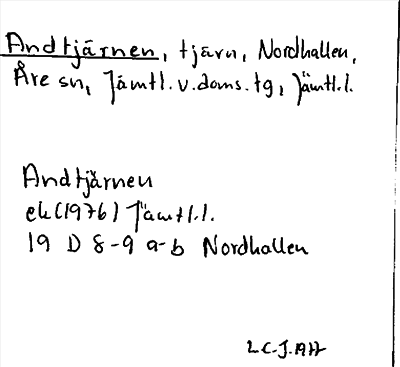 Andtjärnen, tjärn, Nordhallen,
Åre sn, Jämtl.v.doms.tg, Jämtl.l.
Andtjärnen
ek (1976) Jämtl.l.
19 D 8-9 a-b Nordhallen
L C-J. 1977